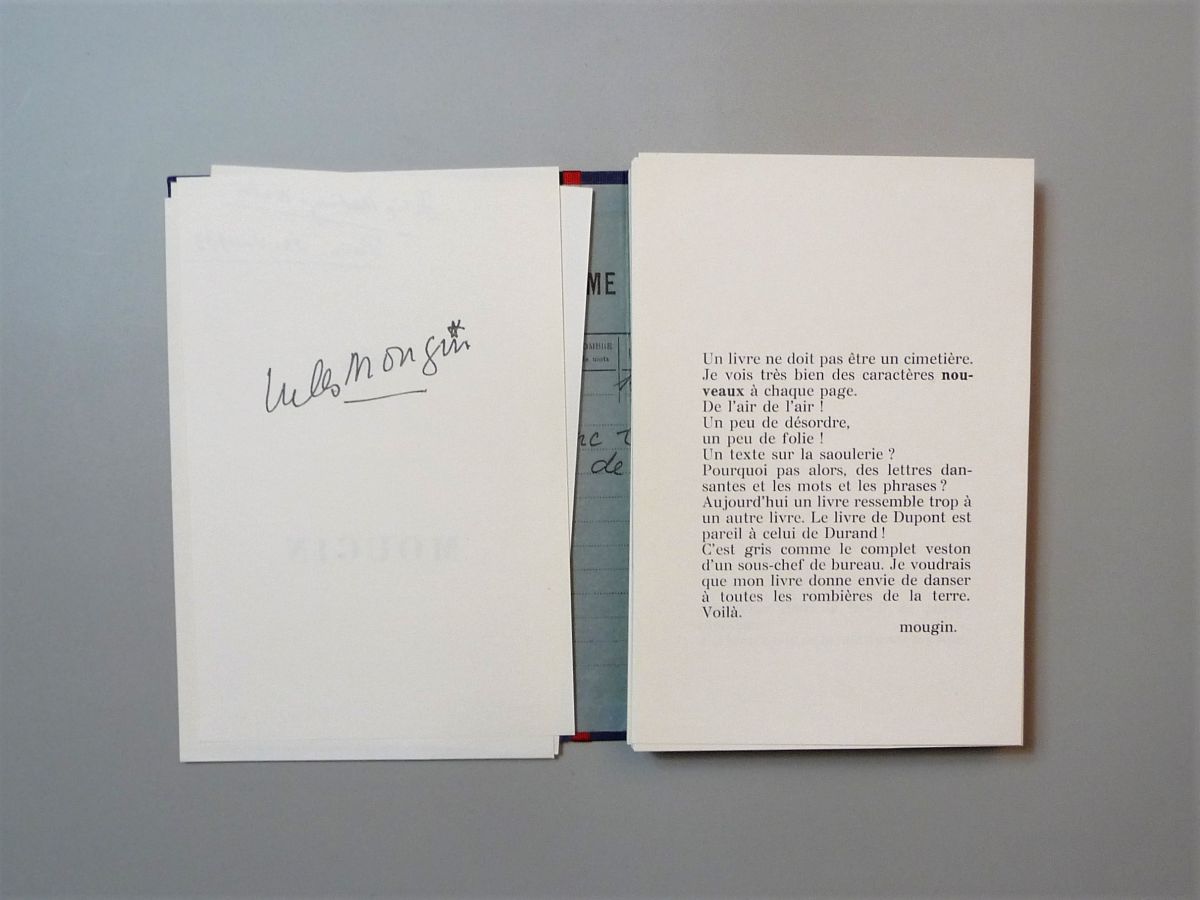 Jules Mougin
MOUGIN
ME
OMBRE
de
Un livre ne doit pas être un cimetière.
Je vois très bien des caractères nou-
veaux à chaque page.
De l'air de l'air !
Un peu de désordre,
un peu de folie !
Un texte sur la saoulerie ?
Pourquoi pas alors, des lettres dan-
santes et les mots et les phrases ?
Aujourd'hui un livre ressemble trop à
un autre livre. Le livre de Dupont est
pareil à celui de Durand !
C'est gris comme le complet veston
d'un sous-chef de bureau. Je voudrais
que mon livre donne envie de danser
à toutes les rombières de la terre.
Voilà.
mougin.